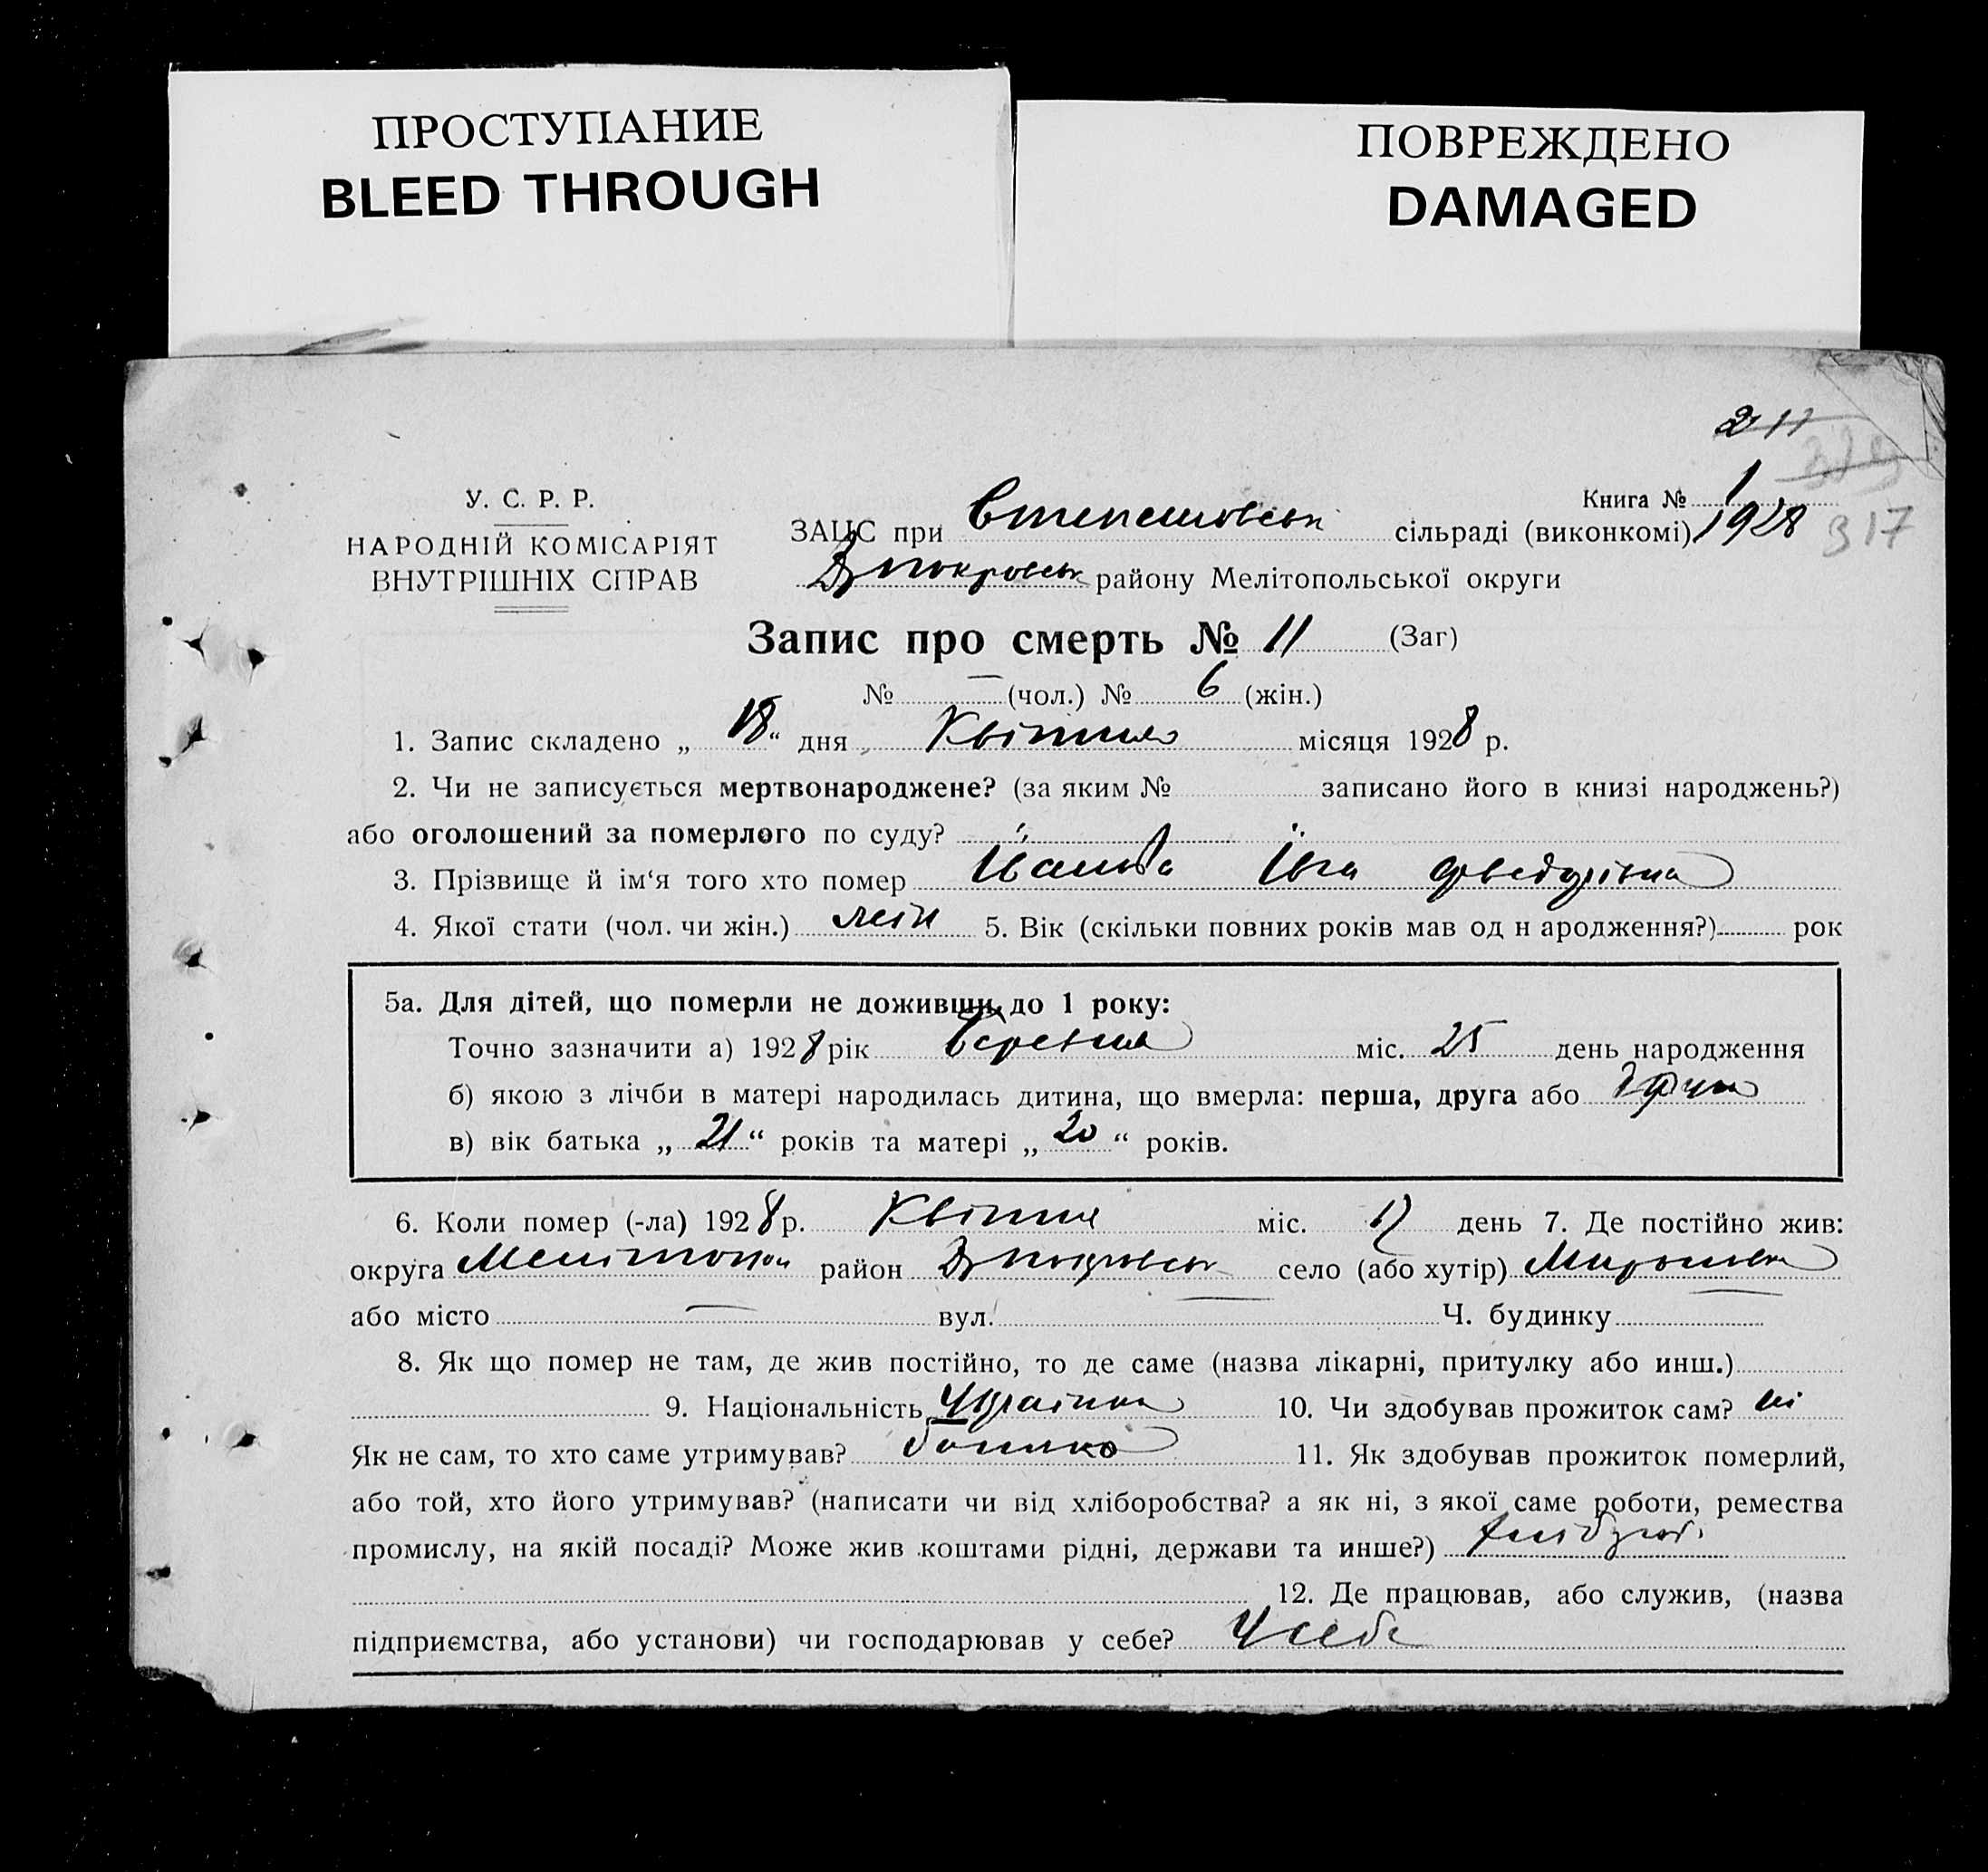 ПРОСТУПАНИЕ
BLEED THROUGH
ПОВРЕЖДЕНО
DAMAGED
211
329
317
У. С. Р. Р.
НАРОДНІЙ КОМІСАРІЯТ
ВНУТРІШНІХ СПРАВ
Книга № 1
ЗАЦС при сільраді (виконкомі) 1928
покровськ району Мелітопольської округи
Запис про смерть № 11 (Заг)
№ — (чол.) № 6 (жін.)
1. Запис складено „ 18 “ дня Квітня місяця 1928 р.
2. Чи не записується мертвонароджене? (за яким № записано його в книзі народжень?)
або оголошений за померлого по суду?
3. Прізвище й ім‘я того хто помер Ївга
4. Якої стати (чол. чи жін.) жін 5. Вік (скільки повних років мав од н ародження?) рок
5а. Для дітей, що померли не доживши до 1 року:
Точно зазначити а) 1928 рік Березня міс. 25 день народження
б) якою з лічби в матері народилась дитина, що вмерла: перша, друга або друга
в) вік батька „ 21 “ років та матері „ 20 “ років.
6. Коли помер (-ла) 1928 р. Квітня міс. 17 день 7. Де постійно жив:
округа Мелітопол район покровськ село (або хутір)
або місто — вул. — Ч. будинку —
8. Як що помер не там, де жив постійно, то де саме (назва лікарні, притулку або инш.)
9. Національність Українка 10. Чи здобував прожиток сам? ні
Як не сам, то хто саме утримував? батько 11. Як здобував прожиток померлий,
або той, хто його утримував? (написати чи від хліборобства? а як ні, з якої саме роботи, ремества
промислу, на якій посаді? Може жив коштами рідні, держави та инше?)
12. Де працював, або служив, (назва
підприємства, або установи) чи господарював у себе? У себе